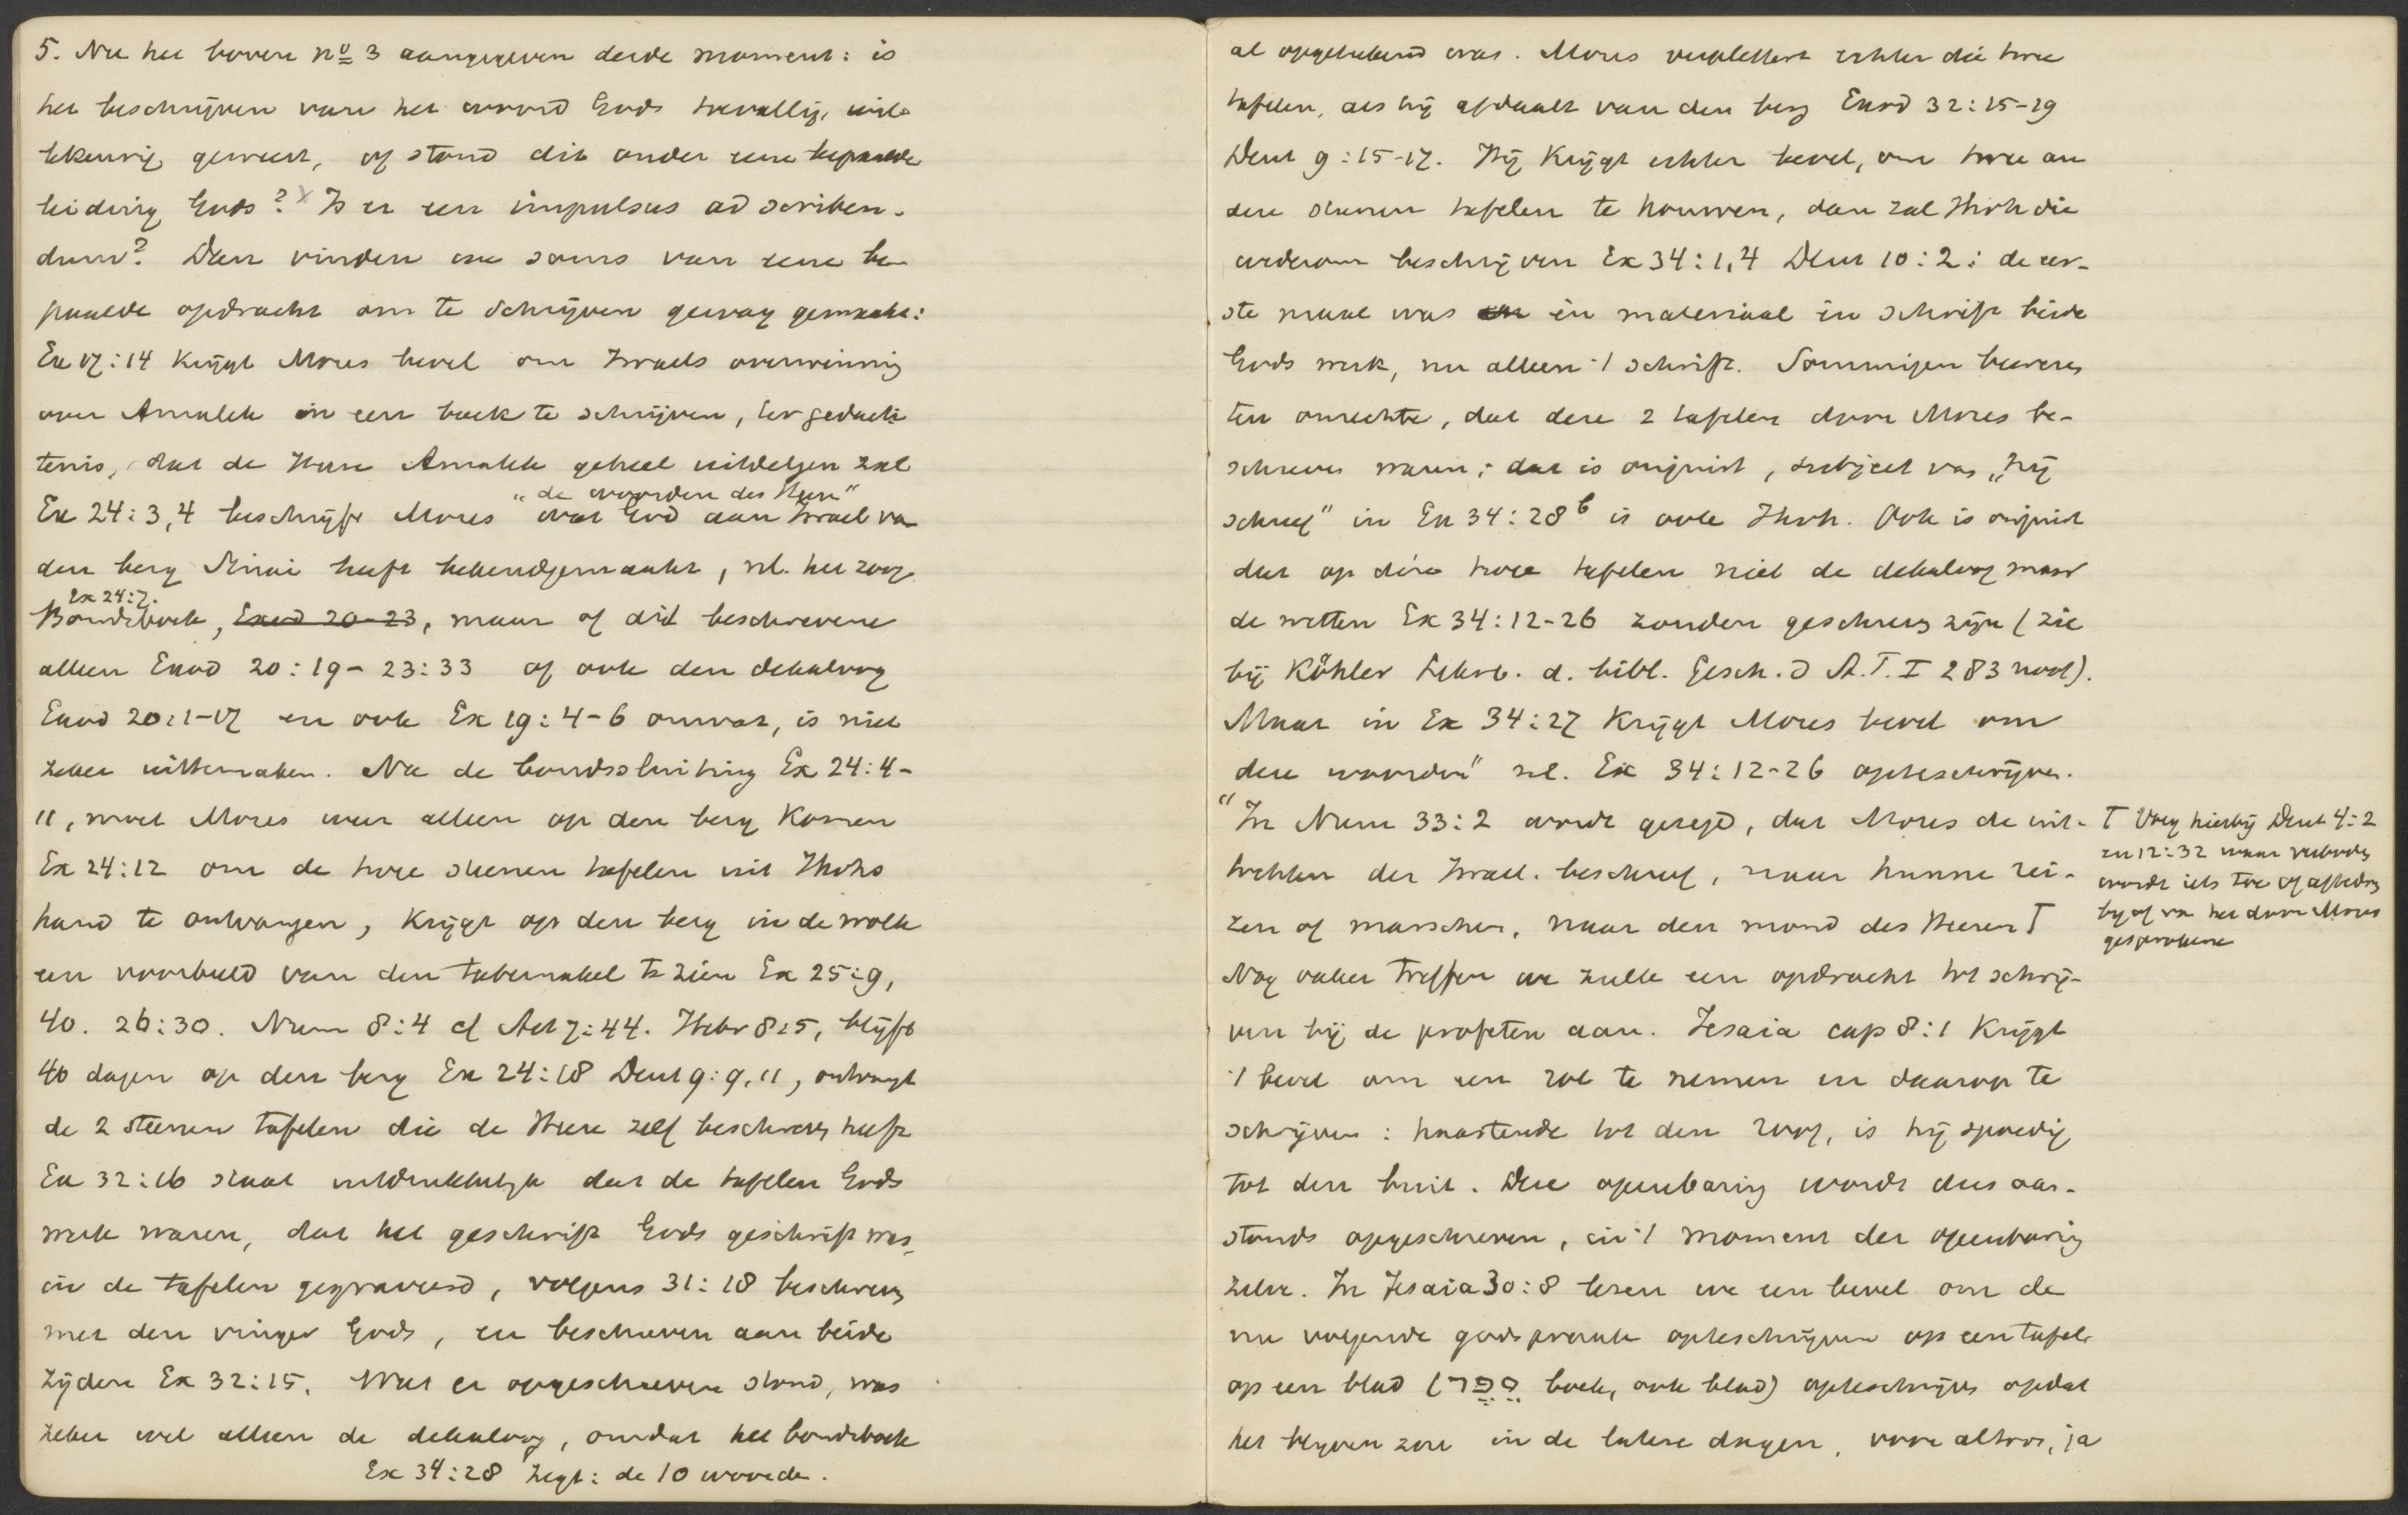 5. Nu het boven nº 3 aangegeven derde moment: is
het beschrijven van het woord Gods toevallig, wille
keurig geweest, of stond dit onder eene bepaalde
leiding Gods? x Is er een impulsus ad scriben-
dum? Dan vinden we soms van eene be
paalde opdracht om te schrijven gewag gemaakt:
Ex 17:14 krijgt Mozes bevel om Israels overwinning
over Amalek in een boek te schrijven, ter gedach
tenis, dat de Heere Amalek geheel uitdelgen zal
"de woorden des Heeren"
Ex 24:3,4 beschrijft Mozes wat God aan Israel van
den berg Sinai heeft bekendgemaakt, nl. het zoog.
Ex 24:7.
Bondsboek, Exod 20-23, maar of dit beschrevene
alleen Exod 20:19-23:33 of ook den dekaloog
Exod 20:1-17 en ook Ex 19:4-6 omvat, is niet
zeker uittemaken. Na de bondssluiting Ex 24:4-
11, moet Mozes weer alleen op den berg komen
Ex 24:12 om de twee steenen tafelen uit Jhvhs
hand te ontvangen, krijgt op den berg in de wolk
een voorbeeld van den tabernakel te zien Ex 25:9,
40. 26:30. Num 8:4 cf Act 7:44. Hebr 8:5, blijft
40 dagen op den berg Ex 24:18 Deut 9:9,11, ontvangt
de 2 steenen tafelen die de Heere zelf beschreven heeft
Ex 32:16 staat uitdrukkelijk dat de tafelen Gods
werk waren, dat het geschrift Gods geschrift was,
in de tafelen gegraveerd, volgens 31:18 beschreven
met den vinger Gods, en beschreven aan beide
zijden Ex 32:15. Wat er opgeschreven stond, was
zeker wel alleen de dekaloog, omdat het bondsboek
Ex 34:28 zegt: de 10 woorden.
al opgetekend was. Mozes verplettert echter die twee
tafelen, als hij afdaalt van den berg Exod 32:15-19
Deut 9:15-17. Hij krijgt echter bevel, om twee an
dere steenen tafelen te houwen, dan zal Jhvh die
wederom beschrijven Ex 34:1,4 Deut 10:2: de eer-
ste maal was en materiaal en schrift beide
Gods werk, nu alleen 't schrift. Sommigen beweren
ten onrechte, dat deze 2 tafelen door Mozes be-
schreven waren; dat is onjuist, subject van „hij
schreef" in Ex 34:28 b is ook Jhvh. Ook is onjuist
dat op deze twee tafelen niet de dekaloog maar
de wetten Ex 34:12-26 zouden geschreven zijn (zie
bij Köhler Lehrb. d. bibl. Gesch. d A.T. I 283 noot).
Maar in Ex 34:27 krijgt Mozes bevel om
deze woorden" nl. Ex 34:12-26 opteschrijven.
"In Num 33:2 wordt gezegd, dat Mozes de uit-
tochten der Israel. beschreef, naar hunne rei-
zen of marschen, naar den mond des Heeren T
Nog vaker treffen we zulk een opdracht tot schrij-
ven bij de profeten aan. Jesaia cap 8:1 krijgt
't bevel om een rol te nemen en daarop te
schrijven: haastende tot den roof, is hij spoedig
tot den buit. Deze openbaring wordt dus aan-
stonds opgeschreven, in 't moment der openbaring
zelve. In Jesaia 30:8 lezen we een bevel om de
nu volgende godspraak opteschrijven op een tafel
op een blad (סֵפֶר boek, ook blad) opteschrijven opdat
het blijven zou in de latere dagen, voor altoos, ja
T Voeg hierbij Deut 4:2
en 12:32 waar verboden
wordt iets toe of aftedoen
bij of van het door Mozes
gesprokene